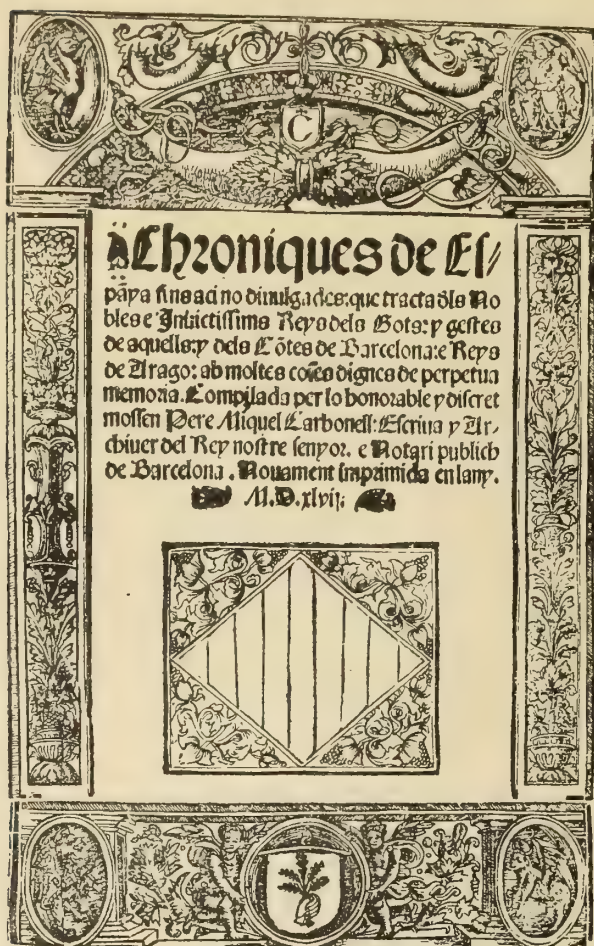 C
Chroniques de Eſ⸗
pāya fins aci no diuulgades: que tracta d̄ls No
bles e Inuictiſſims Reys dels Gots: y geſtes
de aquells: y dels Cōtes de Barcelona: e Reys
de Arago: ab moltes coſes dignes de perpetua
memoria. Compilada per lo honorable y diſcret
moſſen Pere Miquel Carbonell: Eſcriua y Ar-
chiuer del Rey noſtre ſenyor. e Notari publich
de Barcelona. Nouament imprimida en lany.
M.D.xlvij.